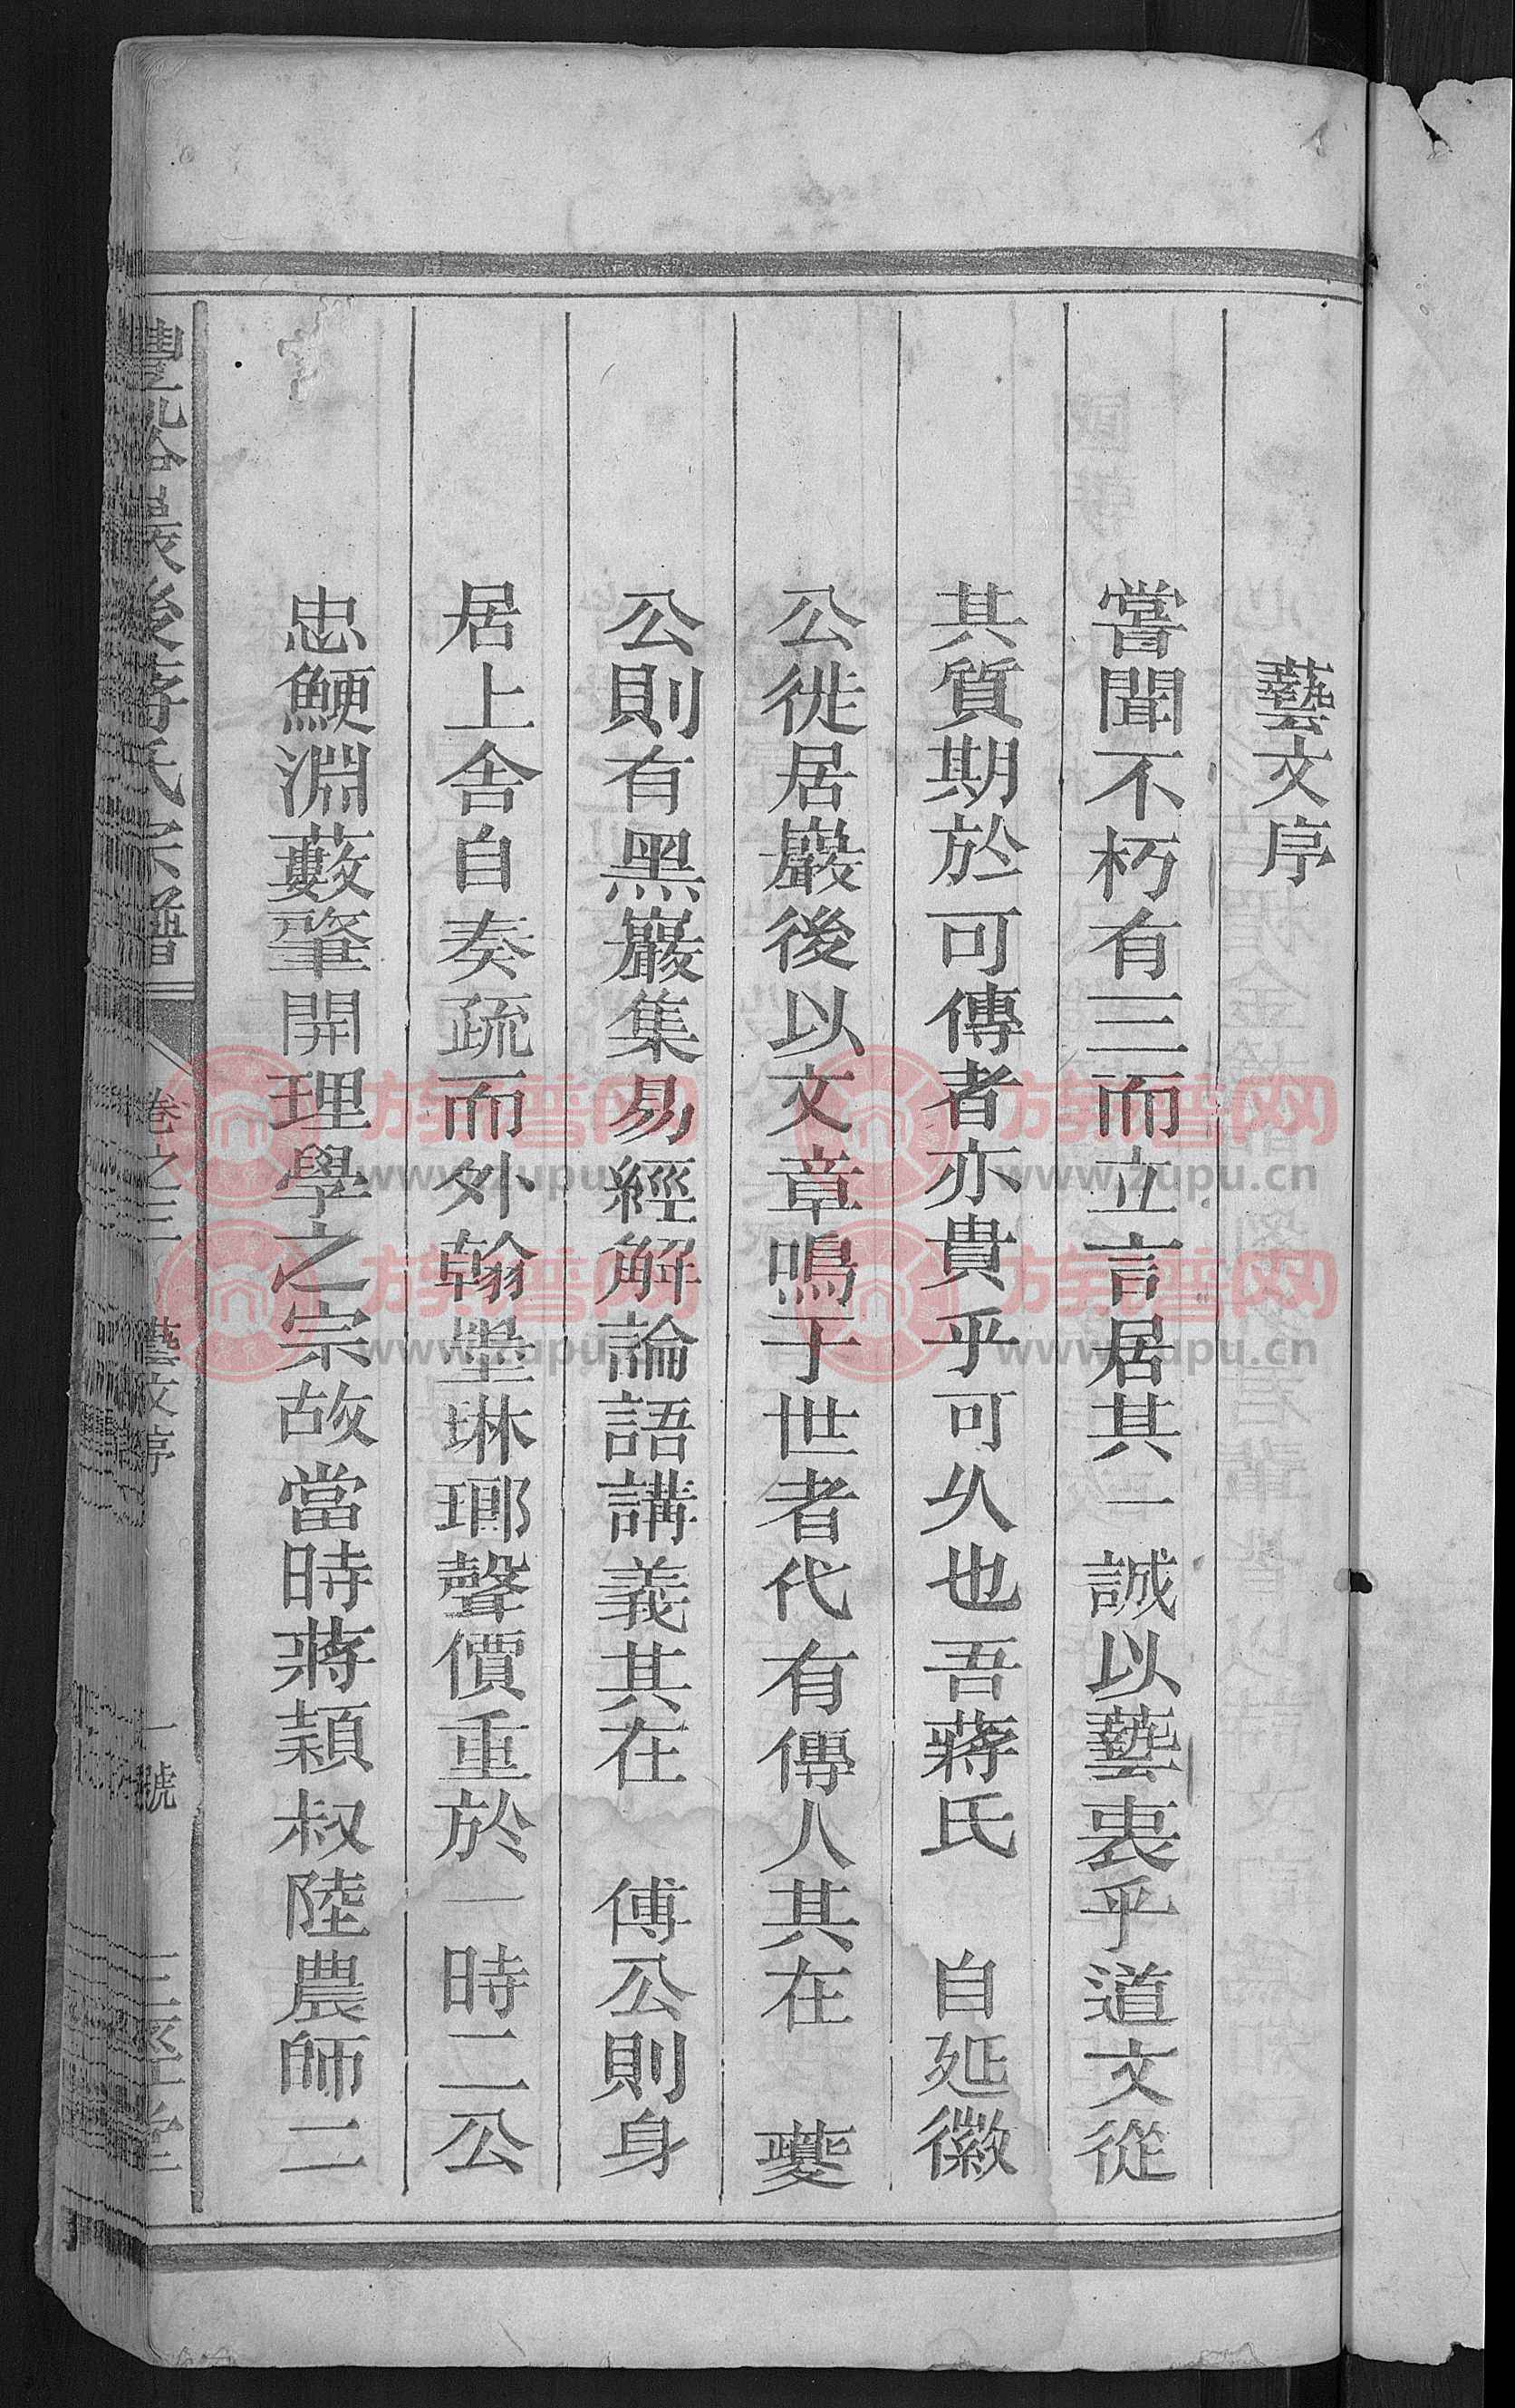 藝文序
嘗聞不朽有三而立言居其一誠以藝衷乎道文從
其質期於可傳者亦貴乎可久也吾蔣氏　自延徽
公徙居巖後以文章鳴于世者代有傳人其在　夔
公則有黑巖集易經解論語講義其在　傅公則身
居上舍自奏疏而外翰墨琳瑯聲價重於一時二公
忠鯁淵藪肇開理學之宗故當時蔣穎叔陸農師二
巖後蔣氏宗譜
卷之三
藝文序
一號
三徑堂
族譜网
www.zupu.cn
族譜网
www.zupu.cn
族譜网
www.zupu.cn
族譜网
www.zupu.cn